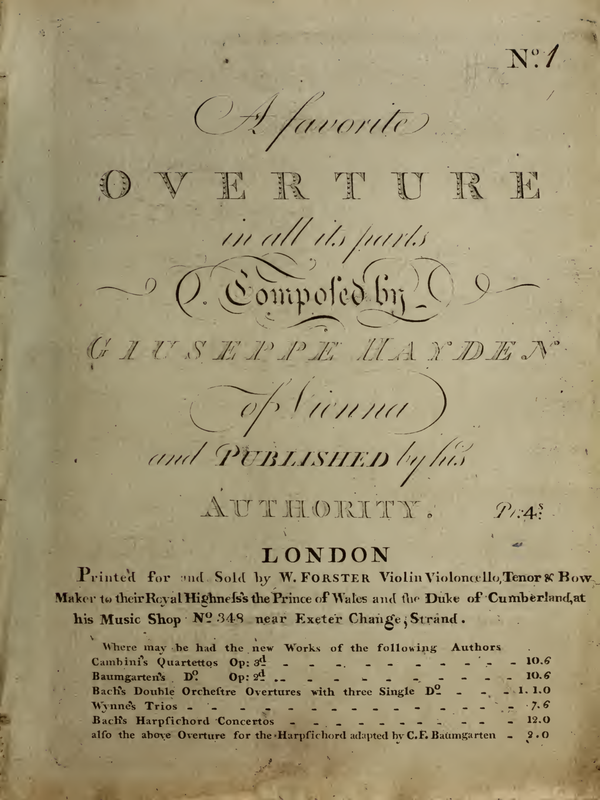 No. 1
A favorite
OVERTURE
in all its parts
Composed by
GIUSEPPE HAYDEN
of Vienna
and PUBLISHED by his
AUTHORITY. Pr. 4s.
LONDON
Printed for and Sold by W. FORSTER Violin Violoncello, Tenor & Bow
Maker to their Royal Highneſs's the Prince of Wales and the Duke of Cumberland, at
his Music Shop No. 348 near Exeter Change, Strand.
Where may be had the new Works of the following Authors
Cambini's Quartettos Op: 3d - - - - - - - - 10.6
Baumgarten's Do. Op: 2d - - - - - - - - 10.6
Bach's Double Orcheſtre Overtures with three Single Do. - - - 1. 1.0
Wynne's Trios - - - - - - - - - - - - 7.6
Bach's Harpſichord Concertos - - - - - - - - 12.0
alſo the above Overture for the Harpſichord adapted by C. F. Baumgarten - 2.0